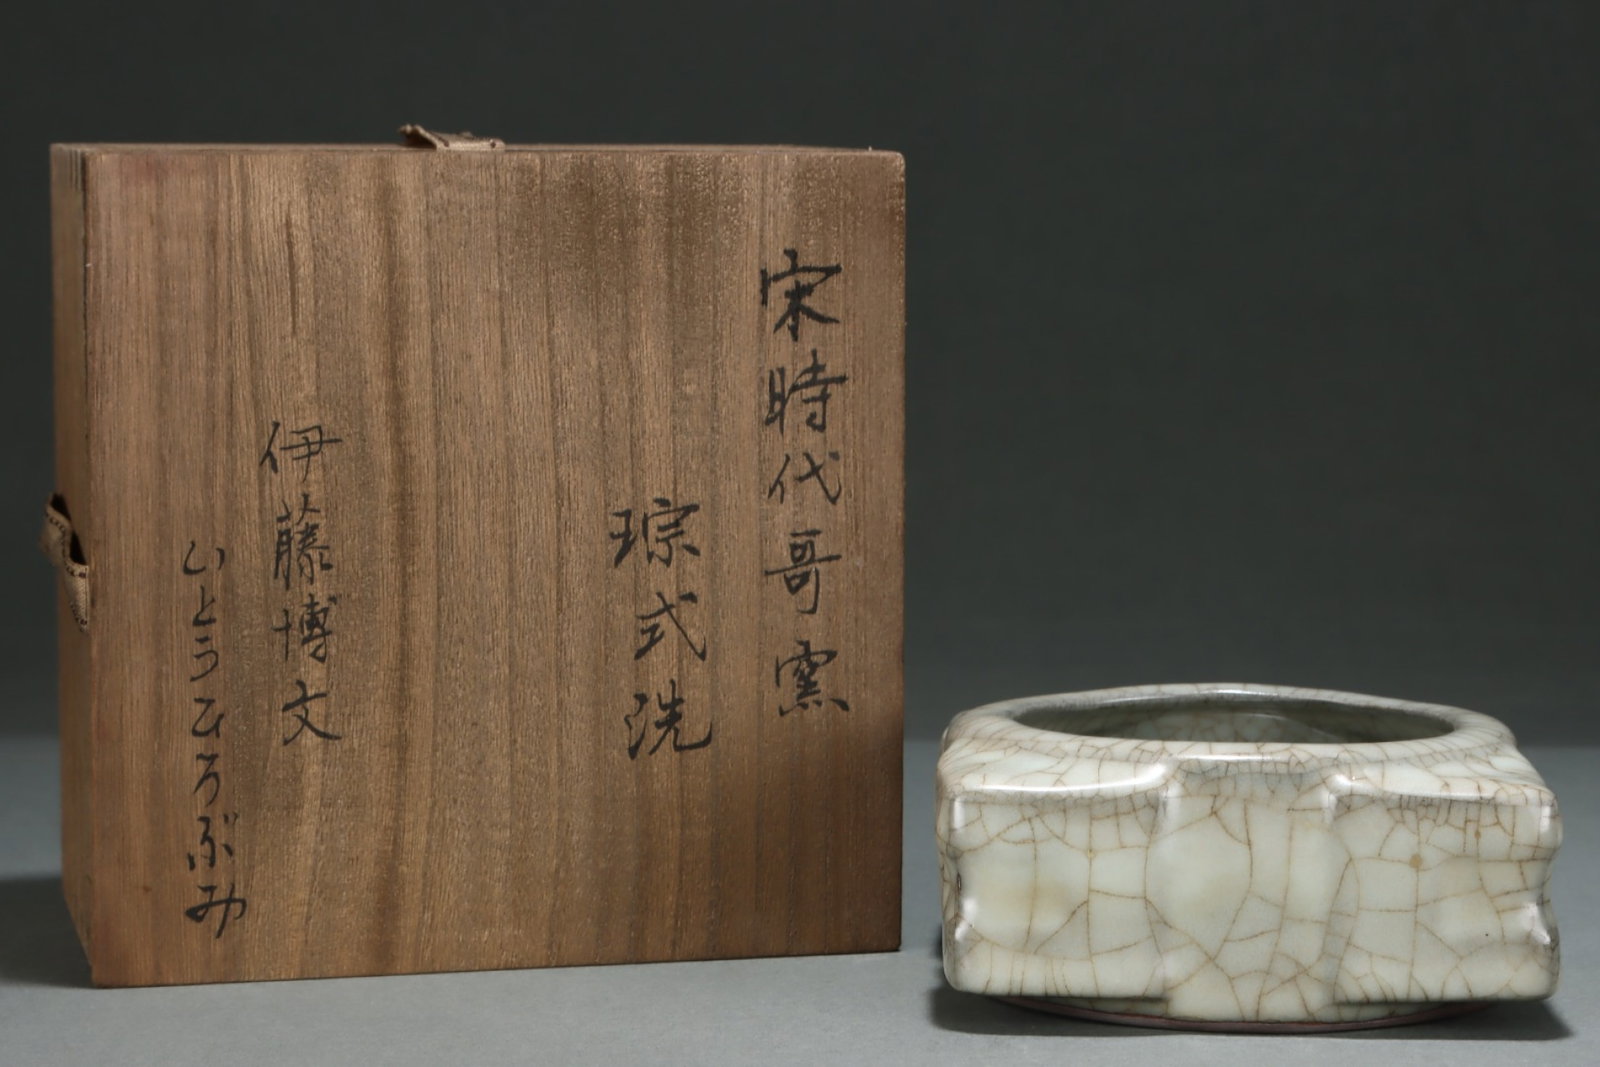 宋時代哥窯
琮式洗
伊藤博文
いとうひろぶみ